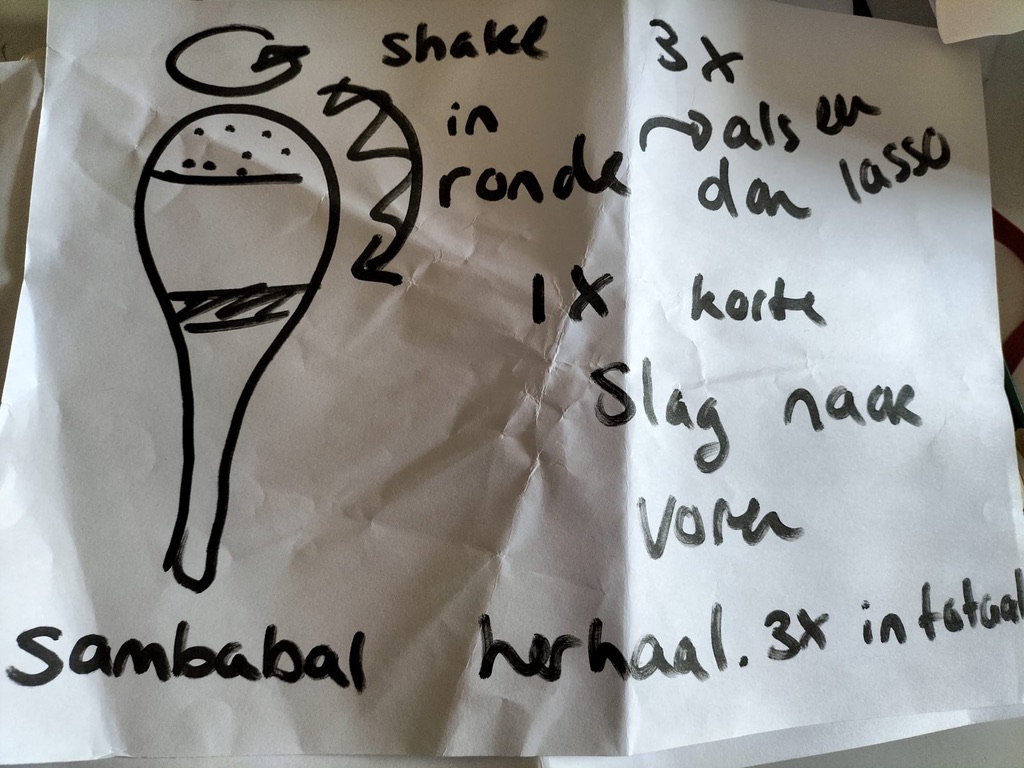 shake 3x
in → als een
ronde dan lasso
1x korte
slag naar
voren
Sambabal herhaal. 3x in totaal